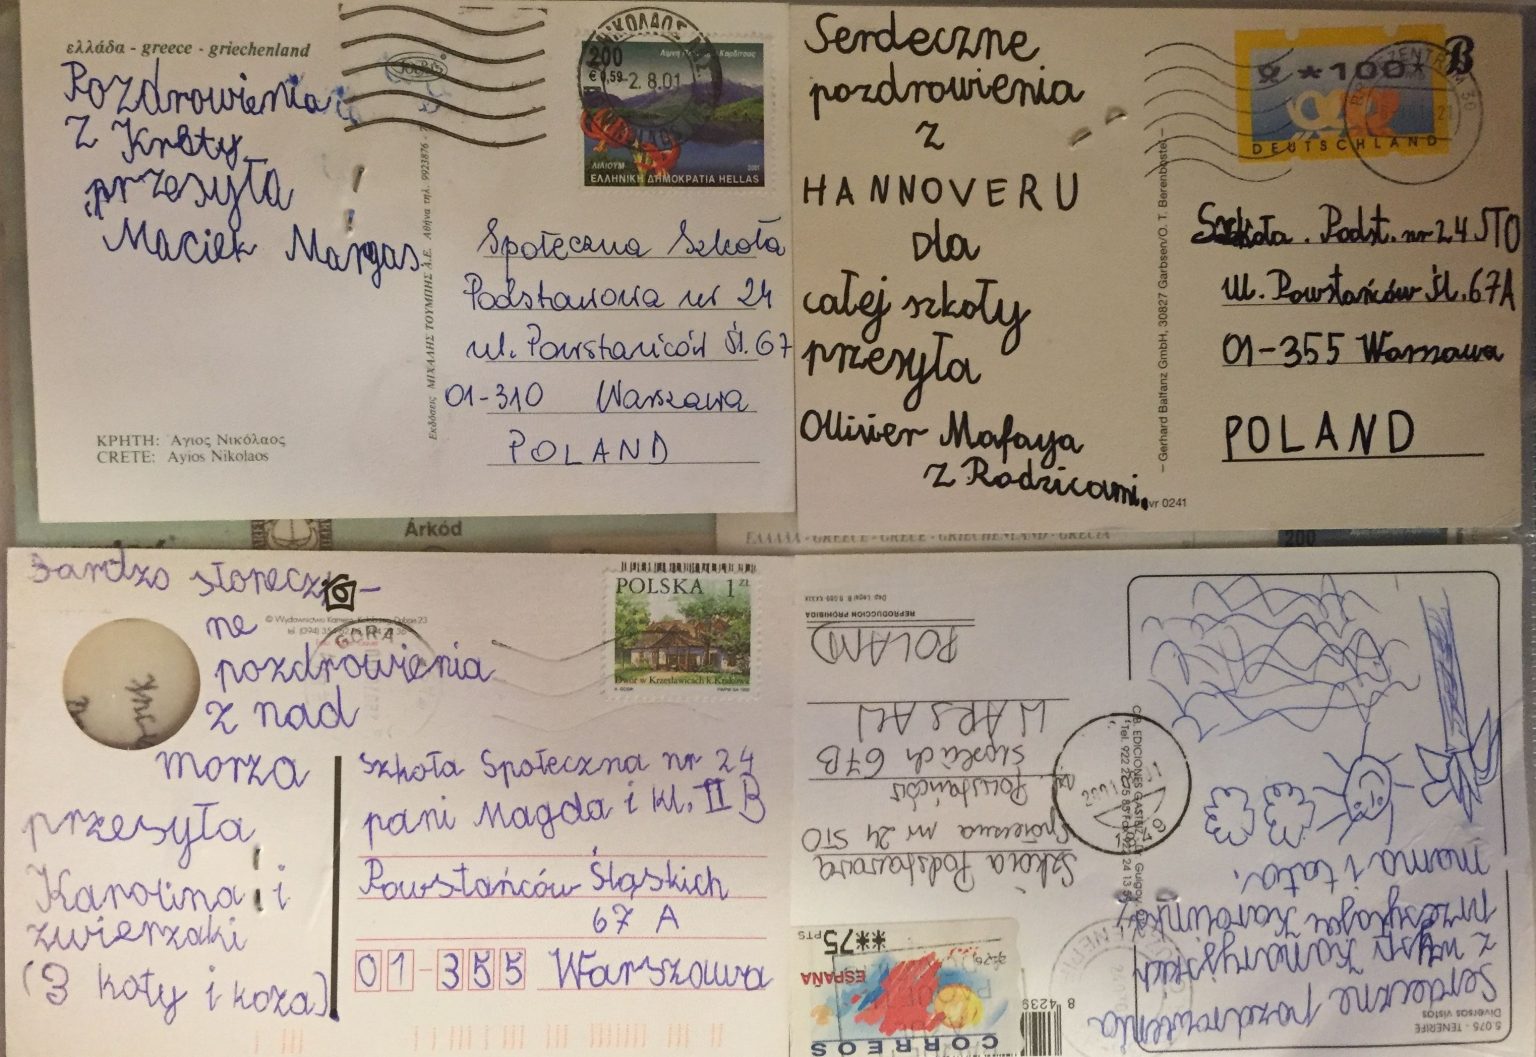 ελλάδα - greece - griechenland
Pozdrowienia
z Krety
przesyła
Maciek Margas
ΚΡΗΤΗ: Άγιος Νικόλαος
CRETE: Ayios Nikolaos
Εκδόσεις ΜΙΧΑΛΗΣ ΤΟΥΜΠΗΣ Α.Ε. Αθήνα τηλ. 9923876
200
€0,59
2.8.01
ΛΙΛΙΟΥΜ
2001
ΕΛΛΗΝΙΚΗ ΔΗΜΟΚΡΑΤΙΑ HELLAS
Społeczna Szkoła
Podstawowa nr 24
ul. Powstańców Śl. 67
01-310 Warszawa
POLAND
Serdeczne
pozdrowienia
z
HANNOVERU
dla
całej szkoły
przesyła
Ollivier Mafaya
z Rodzicami.
– Gerhard Balfanz GmbH, 30827 Garbsen/O. T. Berenbostel –
vr 0241
*100*
DEUTSCHLAND
B
Szkoła. Podst. nr 24 STO
ul. Powstańców Śl. 67A
01-355 Warszawa
POLAND
Árkód
ΕΛΛΑΔΑ - GREECE - GRECE - GRIECHENLAND - GRECIA
200
Bardzo słonecz-
ne
pozdrowienia
z nad
morza
przesyła
Karolina i
zwierzaki
(3 koty i koza)
GÓRA
POLSKA 1 ZŁ
Dwór w Krzesławicach k. Krakowa
Szkoła Społeczna nr 24
pani Magda i kl. II B
Powstańców Śląskich
67 A
01-355 Warszawa
5.075 - TENERIFE
Diversas vistas
Serdeczne pozdrowienia
z wysp Kanaryjskich
przesyłają Karolinka,
mama i tata.
CORREOS
ESPAÑA
**75 PTS
8 4239
Szkoła Podstawowa
Społeczna nr 24 STO
Powstańców
Śląskich 67B
WARSAW
POLAND
REPRODUCCION PROHIBIDA